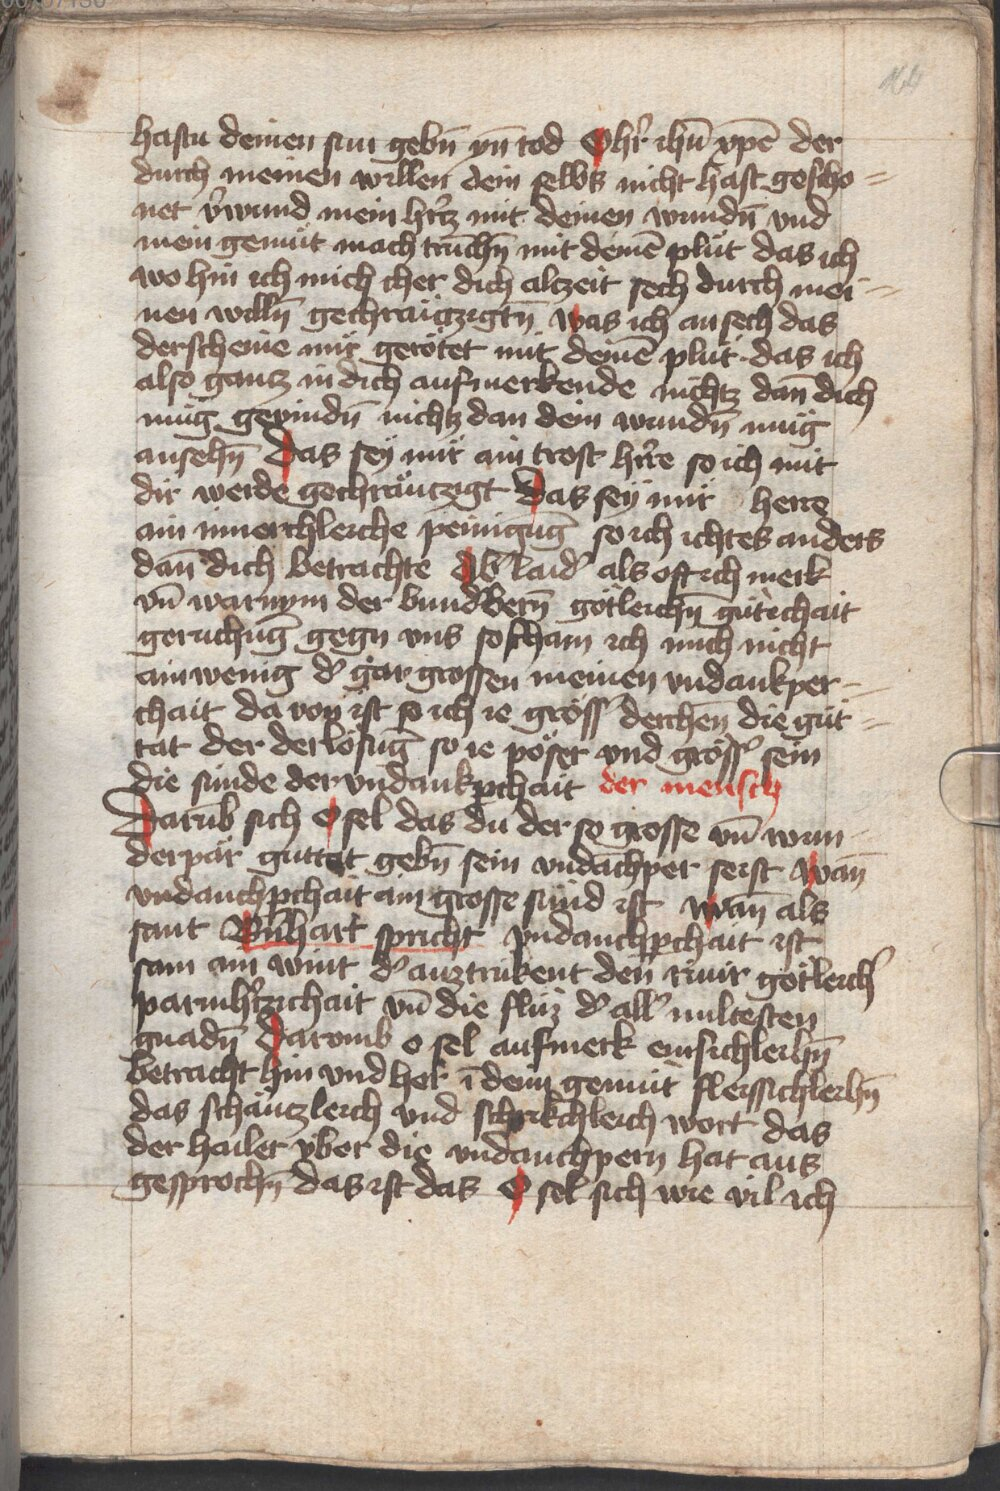 164
hastu deinen sun gebn̄ yn̄ tod O hr̄ ihū xpē der
durch meinen willen dein selbs nicht hast gescho=
net v̓wund mein hr̓tz mit deinen wundn̄ vnd
mein gemüt mach trūchn̄ mit deinē plüt das ich
wo hin ich mich cher dich alczeit sech durch mei=
nen willn̄ gechräwczigtn̄ was ich an sech das
derscheine mir gerötet mit deinē plüt das ich
also gantz in dich aufmerkende nichtz dan̄ dich
müg gevindn̄ nichtz dan dein wundn̄ müg
ansehn̄ Das sey mir ain trost hr̄re so ich mit
dir werde gechräwtzigt Das sey mir herre
ain innerchleiche peinigūg so ich ichtes anders
dan̄ dich betrachte Ab̓ laid̓ als oft ich merk
vn̄ warnym der bundbern̄ götleichn̄ gütichait
geruchūg gegn vns so scham ich mich nicht
ain wenig d̓ gar grossen meinen vndankper=
chait da von ist so ich ie gröss derchen̄ die güt=
tat der derlösūg so ie pöser vnd gröss̓ sein
die sünde der vndankpchait der mensch
Darūb sich O sel das du der so grosse vn̄ wun=
derpär guttat gebn̄ sein vndachper seist wan̄
vndanchpchait ain grosse sünd ist wan̄ als
sant Bn̄hart spricht vndanchpchait ist
sam ain wint d̓ auztrükent den rinir götleich̓
parmhr̓tzichait vn̄ die flüz d̓ all̓ miltesten
gnadn̄ Daromb o sel aufmerk einsichleichn̄
betracht hin vnd her ī dein gemüt fleissichleichn̄
das schäutzleich vnd schrikchleich wort das
der hailer vber die vndanchpern hat aus
gesprochn̄ das ist das O sel sich wie vil ich